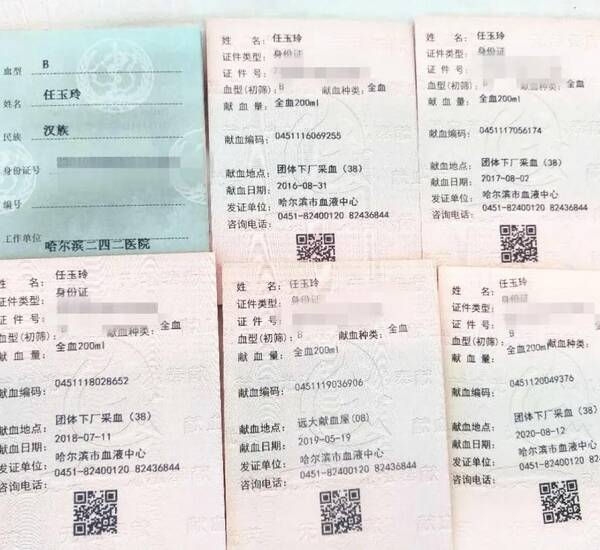 血型 B
姓名 任玉玲
民族 汉族
身份证号
编号
工作单位 哈尔滨二四二医院
姓 名: 任玉玲
证件类型: 身份证
证 件 号:
血型(初筛): B 献血种类: 全血
献 血 量: 全血200ml
献血编码: 0451116069255
献血地点: 团体下厂采血(38)
献血日期: 2016-08-31
发证单位: 哈尔滨市血液中心
咨询电话: 0451-82400120 82436844
姓 名: 任玉玲
证件类型: 身份证
证 件 号:
血型(初筛): B 献血种类: 全血
献 血 量: 全血200ml
献血编码: 0451117056174
献血地点: 团体下厂采血(38)
献血日期: 2017-08-02
发证单位: 哈尔滨市血液中心
咨询电话: 0451-82400120 82436844
姓 名: 任玉玲
证件类型: 身份证
证 件 号:
血型(初筛): B 献血种类: 全血
献 血 量: 全血200ml
献血编码: 0451118028652
献血地点: 团体下厂采血(38)
献血日期: 2018-07-11
发证单位: 哈尔滨市血液中心
咨询电话: 0451-82400120 82436844
姓 名: 任玉玲
证件类型: 身份证
证 件 号:
血型(初筛): B 献血种类: 全血
献 血 量: 全血200ml
献血编码: 0451119036906
献血地点: 远大献血屋(08)
献血日期: 2019-05-19
发证单位: 哈尔滨市血液中心
咨询电话: 0451-82400120 82436844
姓 名: 任玉玲
证件类型: 身份证
证 件 号:
血型(初筛): B 献血种类: 全血
献 血 量: 全血200ml
献血编码: 0451120049376
献血地点: 团体下厂采血(38)
献血日期: 2020-08-12
发证单位: 哈尔滨市血液中心
咨询电话: 0451-82400120 82436844